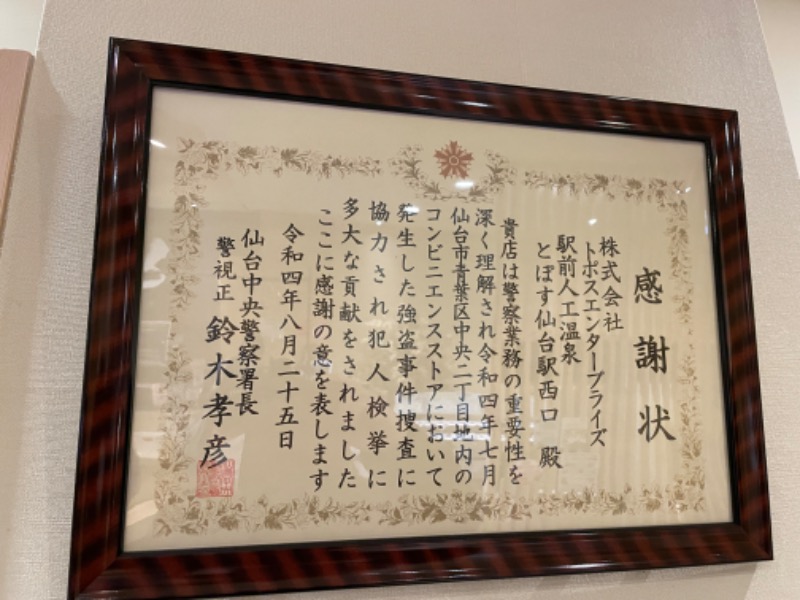 感謝状
株式会社
トポスエンタープライズ
駅前人工温泉
とぽす仙台駅西口 殿
貴店は警察業務の重要性を
深く理解され令和四年七月
仙台市青葉区中央二丁目地内の
コンビニエンスストアにおいて
発生した強盗事件捜査に
協力され犯人検挙に
多大な貢献をされました
ここに感謝の意を表します
令和四年八月二十五日
仙台中央警察署長
警視正 鈴木孝彦